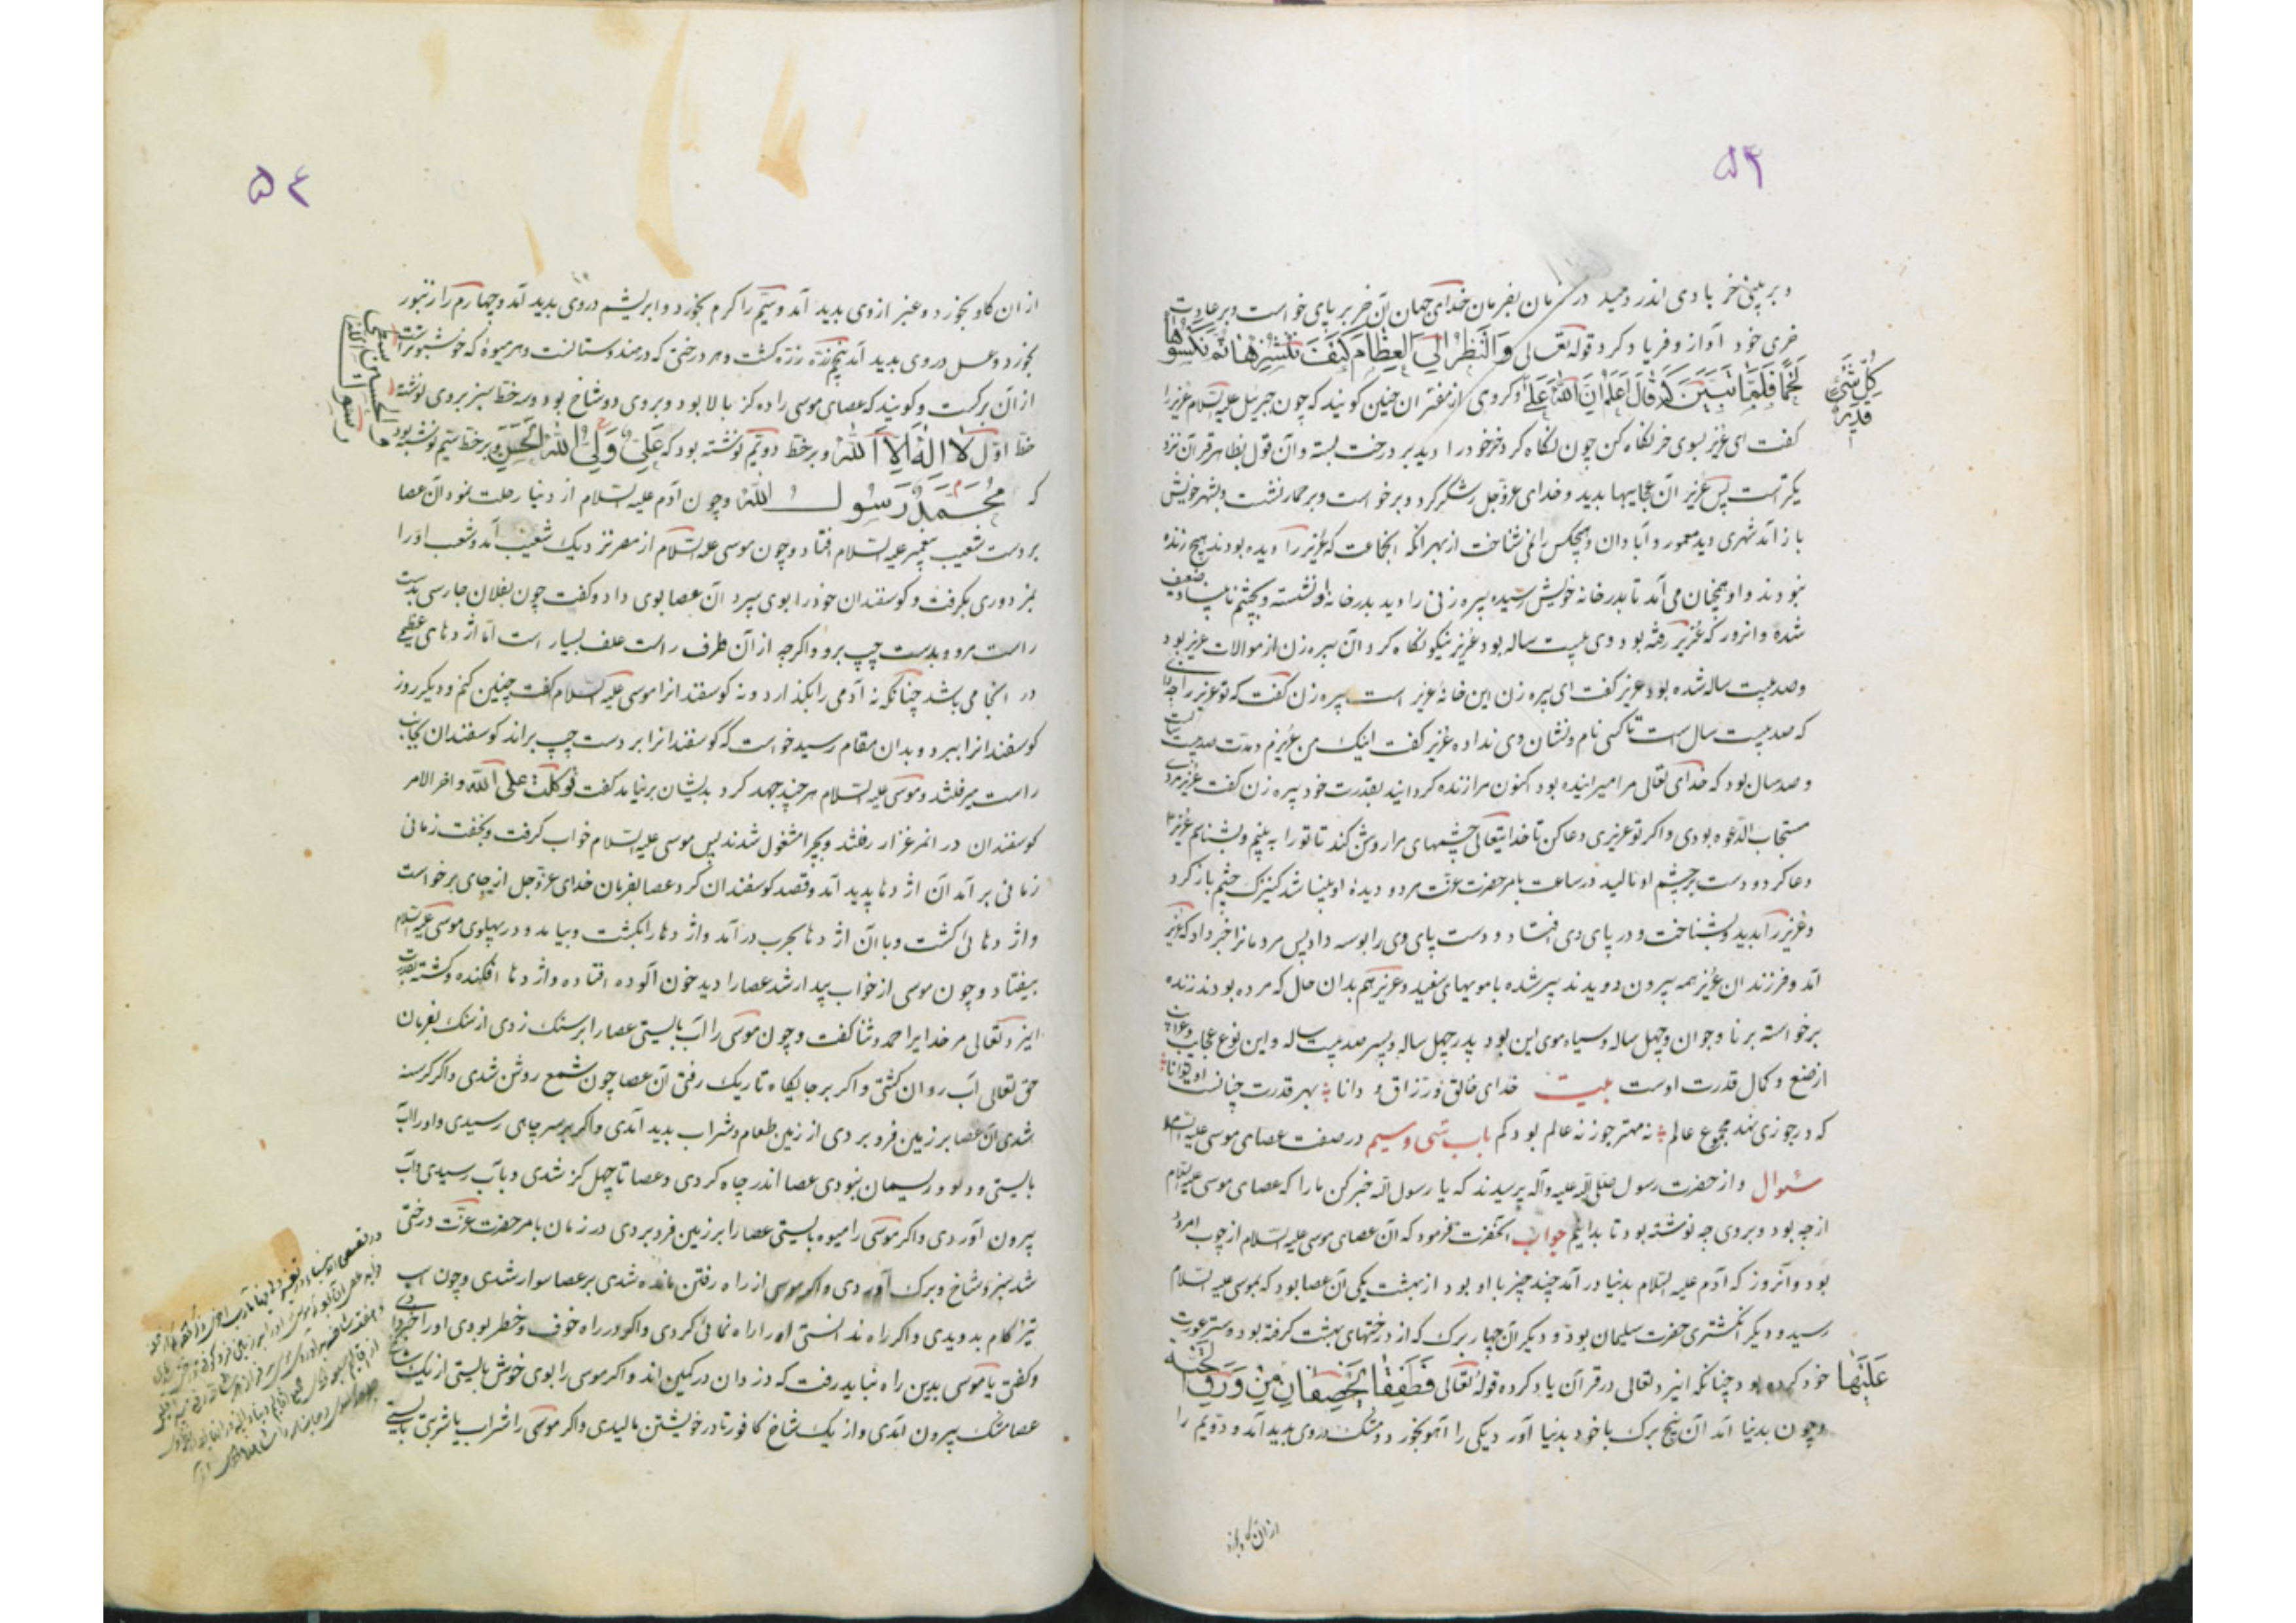 ۵۳
و بر بینی خر بادی اندر دمید در زمان بفرمان خدای جهان آن خر بر پای خواست و بر عادت
خری خود آواز و فریاد کرد قوله تعالی وَانْظُرْ اِلَی الْعِظَامِ کَیْفَ نُنْشِزُهَا ثُمَّ نَکْسُوهَا
لَحْمًا فَلَمَّا تَبَیَّنَ لَهُ قَالَ اَعْلَمُ اَنَّ اللّٰهَ عَلٰی وکروی از مفسران چنین کویند که چون جبرئیل علیه السلام عزیر را
کُلِّ شَیْءٍ قَدِیرٌ
کفت ای عزیر بسوی خر نکاه کن چون نکاه کرد خر خود را دید بر درخت بسته و آن قول بظاهر قرآن نزد
یکتر است پس عزیر آن عجایبها بدید و خدای عزوجل را شکر کرد و برخواست و بر حمار نشست و بشهر خویش
باز آمد شهری دید معمور و آبادان و هیچکس را نمی شناخت از بهر آنکه انجماعت که عزیر را دیده بودند هیچ زنده
نبودند و او همچنان می آمد تا بدر خانه خویش رسیده پیره زنی را دید بدر خانه او نشسته و بچشم نابینا و ضعیف
شده و انروز که عزیر رفته بود وی بیست ساله بود عزیر نیکو نکاه کرد آن پیره زن از موالات عزیر بود
و صد بیست ساله شده بود عزیر کفت ای پیره زن این خانهٔ عزیر است پیره زن کفت که تو عزیر را چه دانی
که صد بیست سال است تا کسی نام و نشان وی نداده عزیر کفت اینک من عزیرم و مدت صد بیست
و صد سال بود که خدای تعالی مرا میرانیده بود اکنون مرا زنده کردانید بقدرت خود پیره زن کفت عزیر مردی
مستجاب الدعوه بودی و اکر تو عزیری دعا کن تا خدایتعالی چشمهای مرا روشن کند تا تو را به بینم و بشناسم عزیر
دعا کرد و دست بر چشم او مالید در ساعت بامر حضرت عزت هر دو دیدهٔ او بینا شد کنیزک چشم باز کرد
و عزیر را بدید و بشناخت و در پای وی افتاد و دست پای وی را بوسه داد پس مردمانرا خبر داد که عزیر
آمد و فرزندان عزیر همه بیرون دویدند پیر شده با مویهای سفید و عزیر هم بدان حال که مرده بودند زنده
برخواسته برنا و جوان و چهل ساله و سیاه موی این بود پدر چهل ساله و پسر صد بیست ساله و این نوع عجایب و غرایب
از صنع و کمال قدرت اوست بیت خدای خالق و رزاق و دانا بهر قدرت چنانست او توانا
که در جوزی نهد مجموع عالم نه مهتر جوز نه عالم بود کم باب سی و سیم در صفت عصای موسی علیه السلام
سئوال و از حضرت رسول صلی الله علیه و آله پرسیدند که یا رسول الله خبر کن ما را که عصای موسی علیه السلام
از چه بود و بروی چه نوشته بود تا بدانیم جواب آنحضرت فرمود که آن عصای موسی علیه السلام از چوب امرود
بود و آنروز که آدم علیه السلام بدنیا در آمد چند چیز با او بود از بهشت یکی آن عصا بود که بموسی علیه السلام
رسید و دیگر انکشتری حضرت سلیمان بود و دیکر آن چهار برک که از درختهای بهشت کرفته بود و ستر عورت
خود کرده بود چنانکه ایزد تعالی در قرآن یاد کرده قوله تعالی فَطَفِقَا یَخْصِفَانِ مِنْ وَرَقِ الْجَنَّةِ
عَلَیْهَا
و چون بدنیا آمد آن پنج برک با خود بدنیا آورد یکی را آهو بخورد و مشک در وی بدید آمد و دویم را
از ان کاو بخورد
۵۴
از ان کاو بخورد و عنبر از وی بدید آمد و سیم را کرم بخورد و ابریشم در وی بدید آمد و چهارم را زنبور
بخورد و عسل در وی بدید آمد پنجم زنده کشت و هر درختی که در هندوستانست و هر میوه که خوشبوتر است
از آن برکست و کویند که عصای موسی را ده کز بالا بود و بروی دو شاخ بود و سه خط سبز بروی نوشته
خط اول لَا اِلٰهَ اِلَّا اللّٰه و بر خط دویم نوشته بود که عَلِیٌّ وَلِیُّ اللّٰه الْحَسَن و بر خط سیم نوشته بود
که مُحَمَّدٌ رَسُولُ اللّٰه و چون آدم علیه السلام از دنیا رحلت نمود آن عصا
بر دست شعیب پیغمبر علیه السلام افتاد و چون موسی علیه السلام از مصر نزدیک شعیب آمد و شعیب او را
بمزدوری بکرفت و کوسفندان خود را بوی سپرد آن عصا بوی داد و کفت چون بفلان جا رسی بدست
راست مرو و بدست چپ برو و اکرچه از آن طرف راست علف بسیار است اما اژدهای عظیمی
در انجا می باشد چنانکه نه آدمی را بکذارد و نه کوسفند انرا موسی علیه السلام کفت چنین کنم و دیکر روز
کوسفندانرا ببرد و بدان مقام رسید خواست که کوسفندانرا بر دست چپ براند کوسفندان بجانب
راست میرفتند و موسی علیه السلام هر چند جهد کرد بدیشان برنیامد کفت توکلت علی الله و اخر الامر
کوسفندان در انمرغزار رفتند و بچرا مشغول شدند پس موسی علیه السلام خواب کرفت و بخفت زمانی
زمانی بر آمد آن اژدها پدید آمد و قصد کوسفندان کرد عصا بفرمان خدای عزوجل از جای برخواست
و اژدهائی کشت و با آن اژدها بحرب در آمد و اژدها را بکشت و بیامد و در پهلوی موسی علیه السلام
بیفتاد و چون موسی از خواب بیدار شد عصا را دید خون آلوده افتاده و اژدها افکنده و کشته بقدرت
ایزد تعالی مر خدایرا حمد و ثنا کفت و چون موسی را آب بایستی عصا را بر سنک زدی از سنک بفرمان
حق تعالی آب روان کشتی و اکر بر جایکاه تاریک رفتی آن عصا چون شمع روشن شدی و اکر کرسنه
شدی آن عصا بر زمین فرو بردی از زمین طعام و شراب بدید آمدی و اکر بر سر چاهی رسیدی و او را آب
بایستی و دلو و ریسمان نبودی عصا اندر چاه کردی و عصا تا چهل کز شدی و بآب رسیدی و آب
بیرون آوردی و اکر موسی را میوه بایستی عصا را بر زمین فرو بردی در زمان بامر حضرت عزت درختی
شد سبز و شاخ و برک آوردی و اکر موسی از راه رفتن مانده شدی بر عصا سوار شدی و چون اسب
تیز کام بدویدی و اکر راه ندانستی او را راه نمائی کردی و اکر در راه خوف و خطر بودی او را خبر دادی
و کفتی یا موسی بدین راه نباید رفت که دزدان در کمین اند و اکر موسی را بوی خوش بایستی از یک شاخ
عصا مشک بیرون آمدی و از یک شاخ کافور تا در خویشتن مالیدی و اکر موسی را شراب یا شربتی بایستی